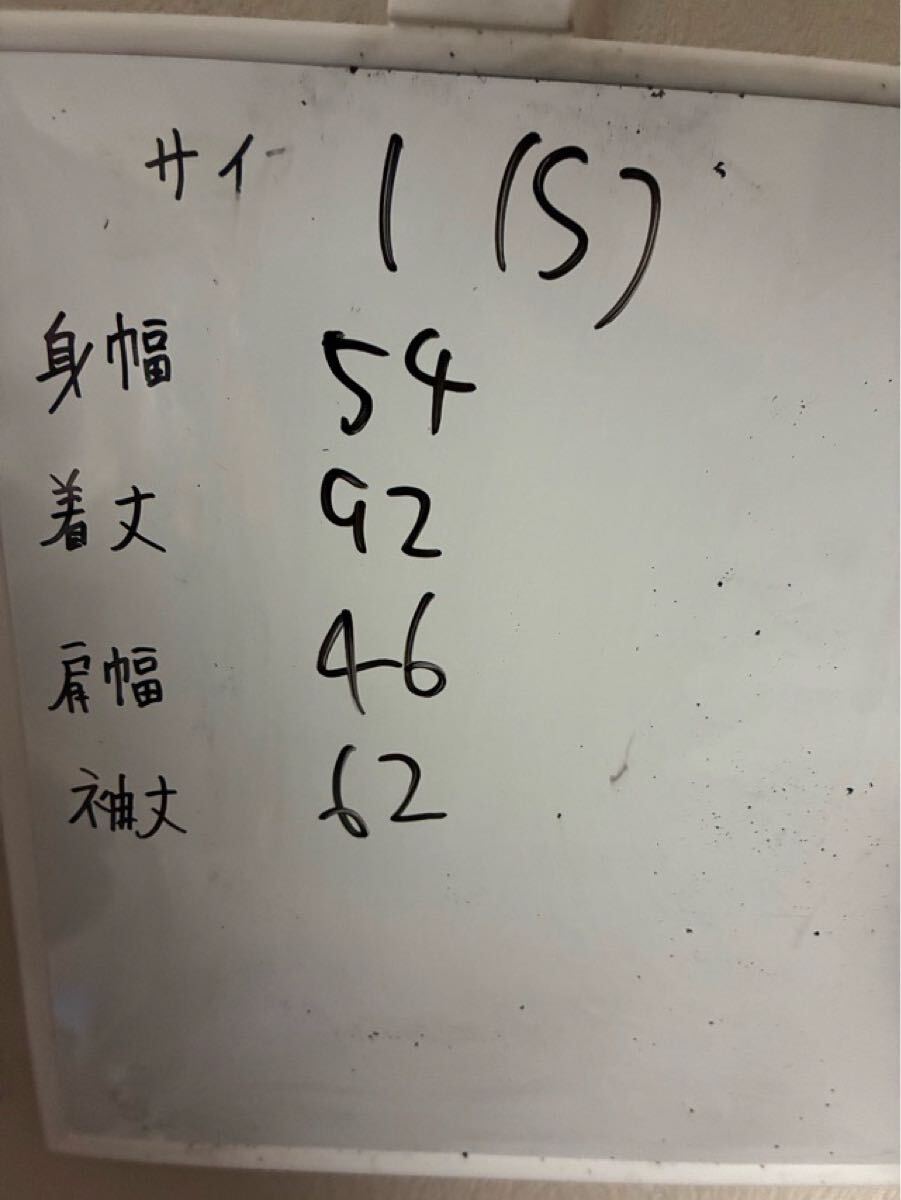 サイ 1 (S)
身幅 54
着丈 92
肩幅 46
袖丈 62